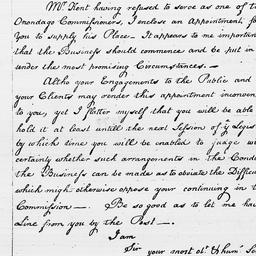 Mr. Kent having refused to serve as one of t
Onondago Commissioners, I inclose an Appointment, fo
You to supply his Place — It appears to me importan
that the Business should commence and be put in
under the most promising Circumstances. —
Altho your Engagements to the Public and
your Clients may render this appointment inconven
to you, yet I flatter myself that you will be able
hold it at least untill the next Session of ye Legis
by which time you will be enabled to judge wi
certainty whether such arrangements in the Condu
the Business can be made as to obviate the Difficu
which might otherwise oppose your continuing in t
Commission —. Be so good as to let me hav
Line from you by the Post —.
I am
Sir your most obt. & hum